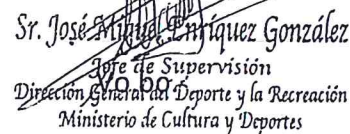 Sr. José Miguel Enríquez González
Jefe de Supervisión
Vo.bo.
Dirección General del Deporte y la Recreación
Ministerio de Cultura y Deportes